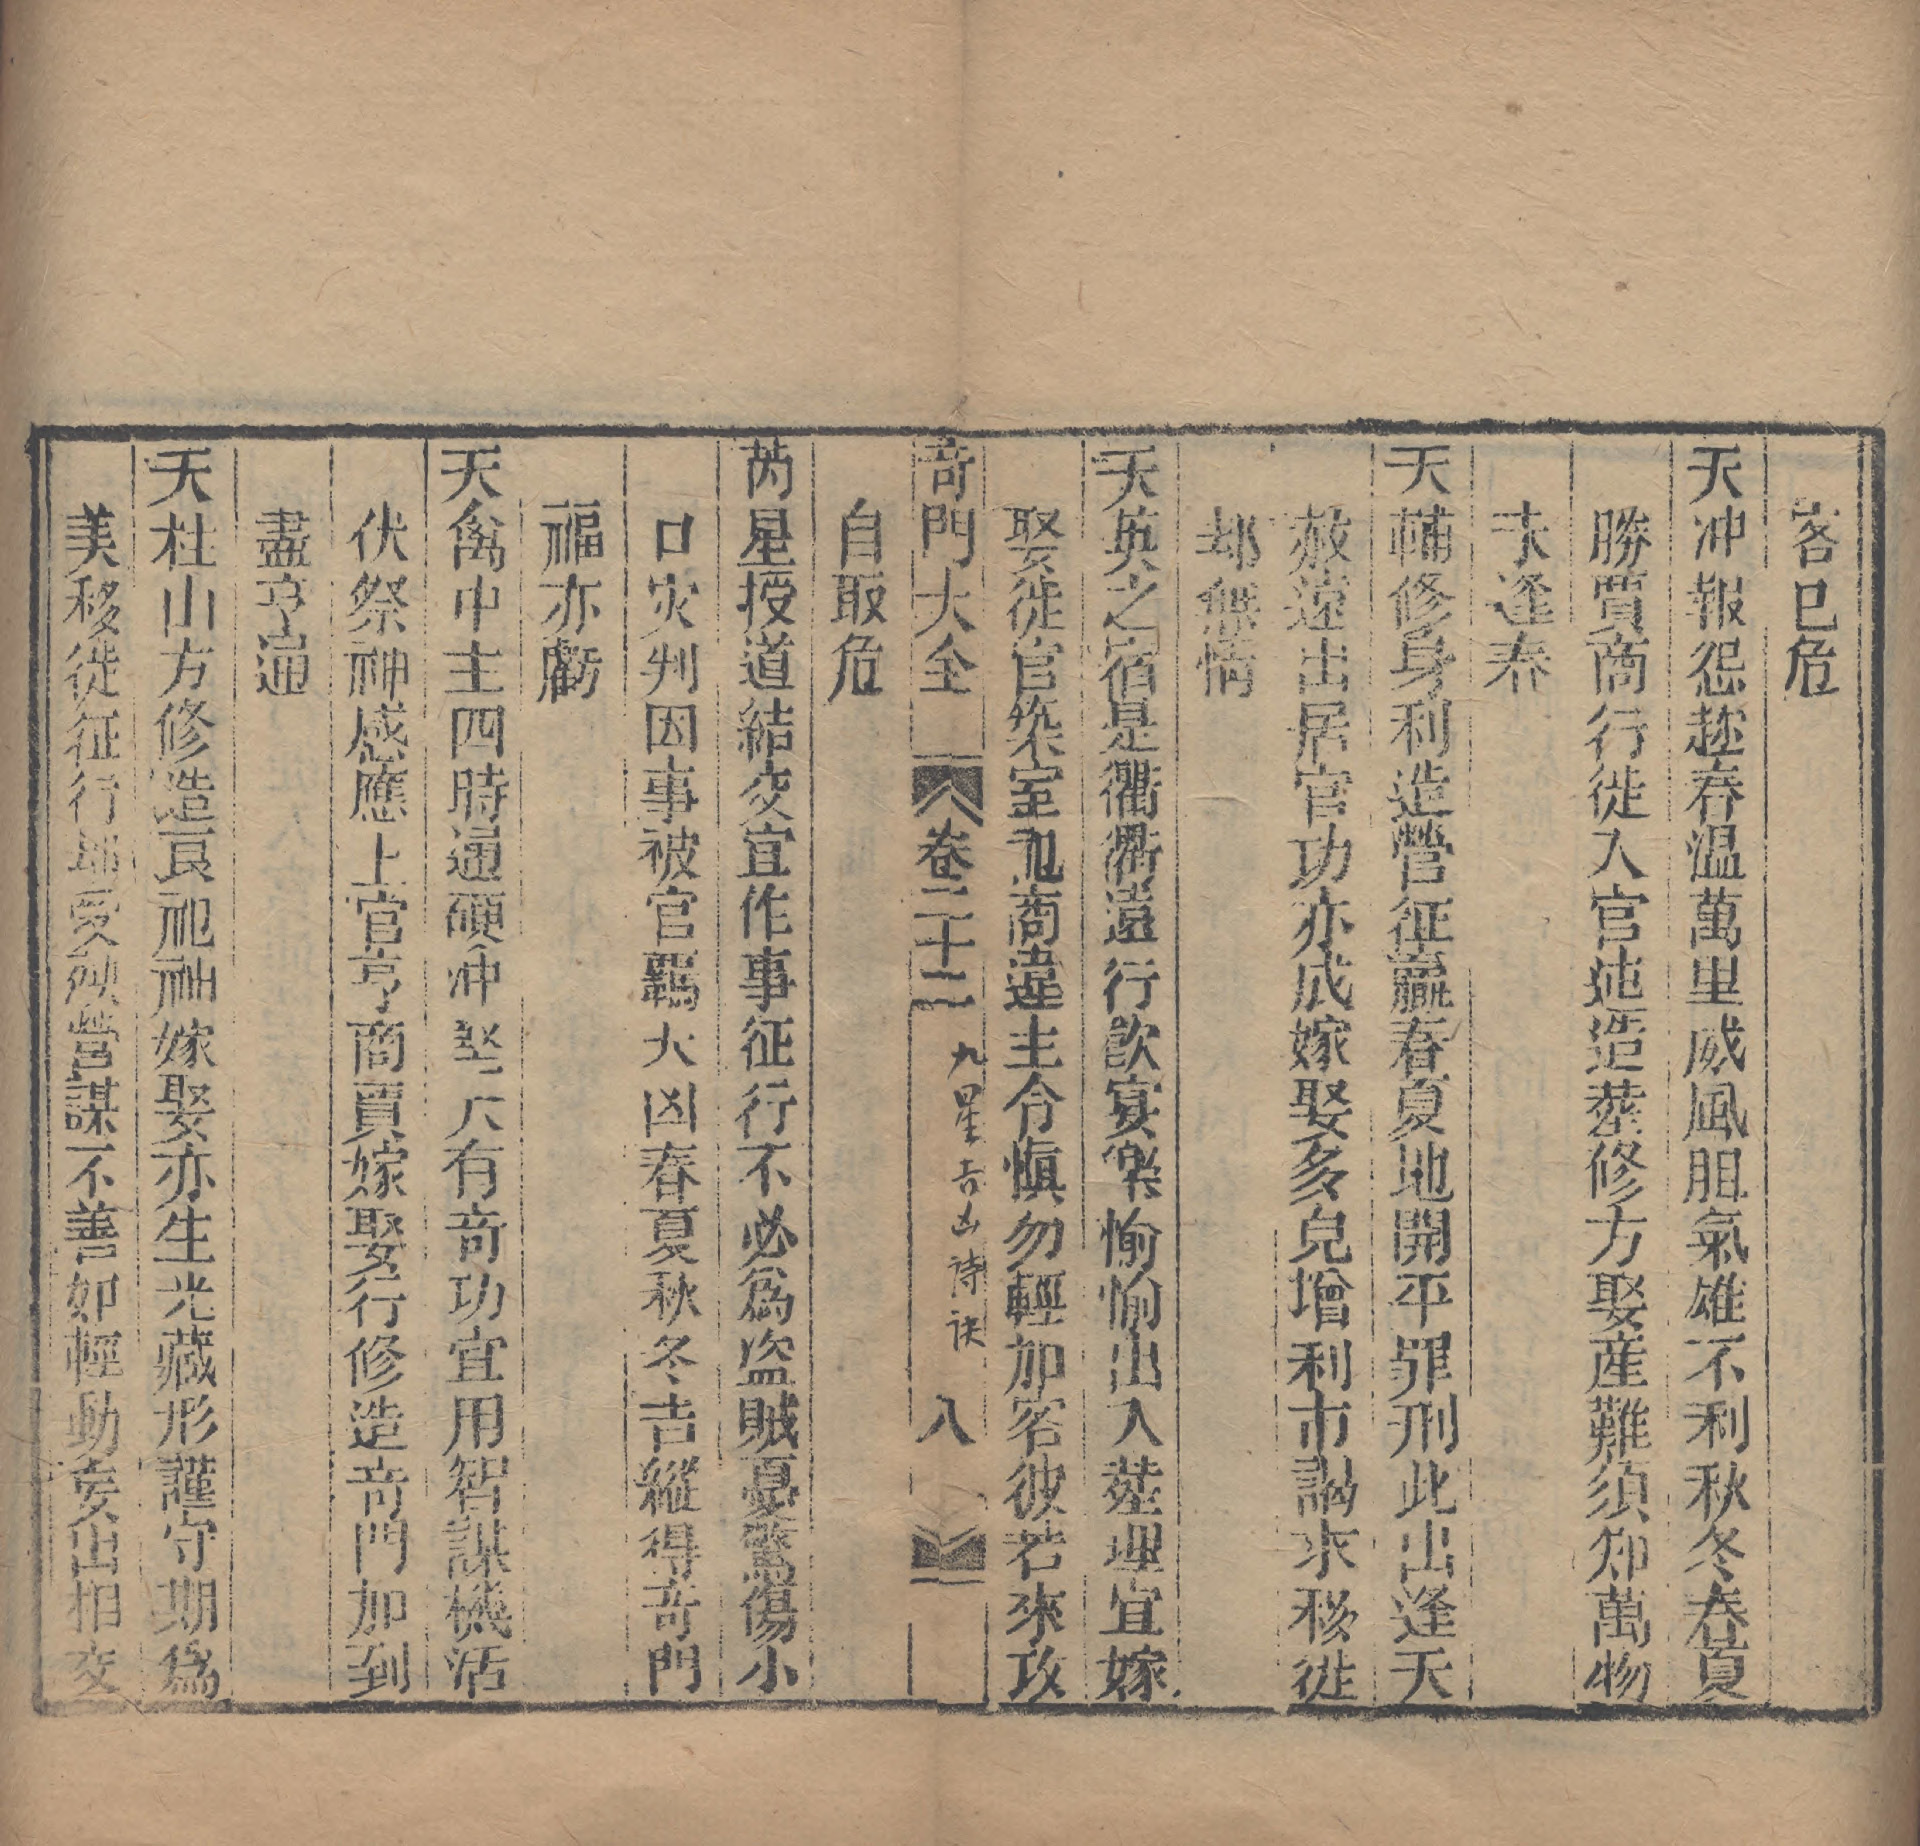 客已危
天冲報怨趂春温萬里威風胆氣雄不利秋冬春夏
勝賈商行徙入官迍造塟修方娶産難須知萬物
未逢春
天輔修身利造營征贏春夏地開平罪刑此出逢天
赦遠出居官功亦成嫁娶多兒增利市謁求移徙
却無情
天英之宿是衢衢遠行飲宴樂愉愉出入塟埋宜嫁
娶徙官染室商違主令愼勿輕加客彼若來攻
自取危
奇門大全 卷二十二 九星吉凶诗诀 八
芮星授道結交宜作事征行不必爲盗賊憂驚傷小
口灾刋因事被官羈大凶春夏秋冬吉縱得奇門
福亦虧
天禽中主四時通硬冲有奇功宜用智謀機活
伏祭神感應上官亨商賈嫁娶行修造奇門加到
盡亨通
天柱山方修造良祀神嫁娶亦生光藏形謹守期爲
美移徙征行却受殃營謀不善如輕動妄出相交